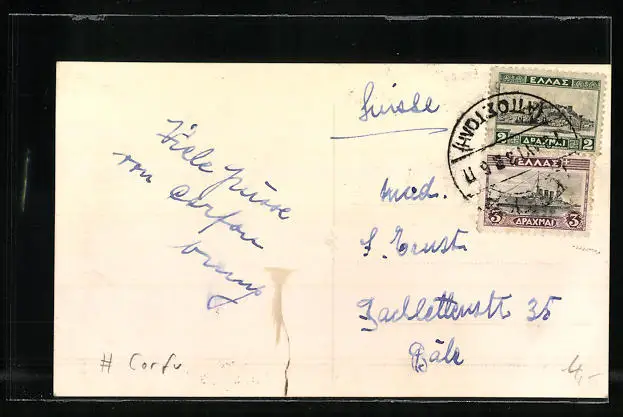 Viele Grüsse
von Corfou
# Corfu
Suisse
Mad.
S. Ernst
Bachlettenstr 35
Bâle
4,-
ΕΛΛΑΣ
2 ΔΡΑΧΜΑΙ 2
ΕΛΛΑΣ
3 ΔΡΑΧΜΑΙ 3